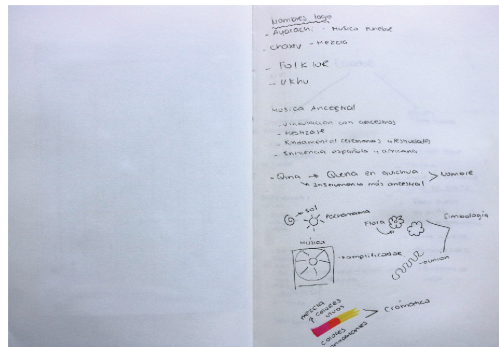 Nombres logo
- Ayarachi : Musica funebre
- Chasky - Mezcla
- Folk we
- Ukhu
Musica Ancestral
- Vinculación con ancestros
- Mestizaje
- Fundamental ceremonias y festividades
- Influencia española y africana
- Qina → Quena en quichua > Nombre
↳ Instrumento más ancestral
→ sol
Pachamama
Flora
Simbología
Música
→ amplificador
- union
mezcla
7 colores
vivos
> Cromática
colores